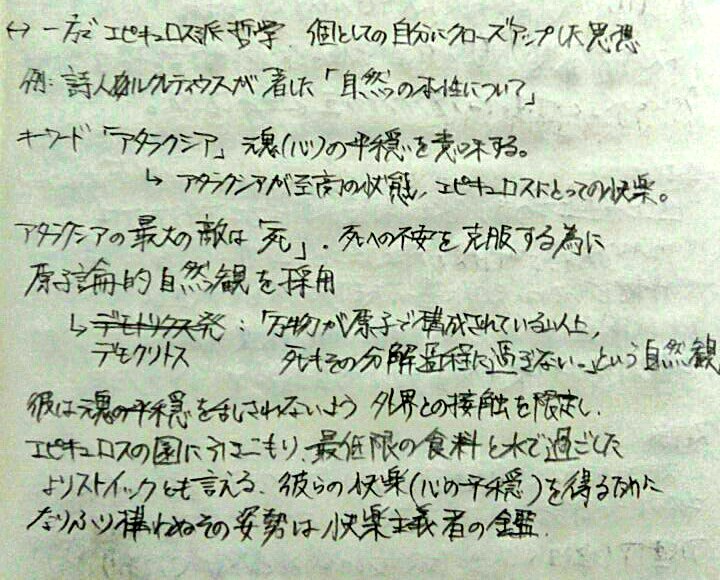 ↔ 一方で エピキュロス派哲学 個としての自分にクローズアップした思想
例: 詩人ルクレティウスが著した「自然の本性について」
キーワード「アタラクシア」 魂(心)の平穏を意味する。
↳ アタラクシアが至高の状態, エピキュロスにとっての快楽。
アタラクシアの最大の敵は「死」. 死への不安を克服する為に
原子論的自然観を採用
↳ デモクリトス発 : 「万物が原子で構成されている以上,
デモクリトス 死もその分解過程に過ぎない。」という自然観
彼は魂の平穏を乱されないよう 外界との接触を限定し、
エピキュロスの園に引きこもり、最低限の食料と水で過ごした
よりストイックとも言える、彼らの快楽(心の平穏)を得るために
なりふり構わぬその姿勢は快楽主義者の鑑.